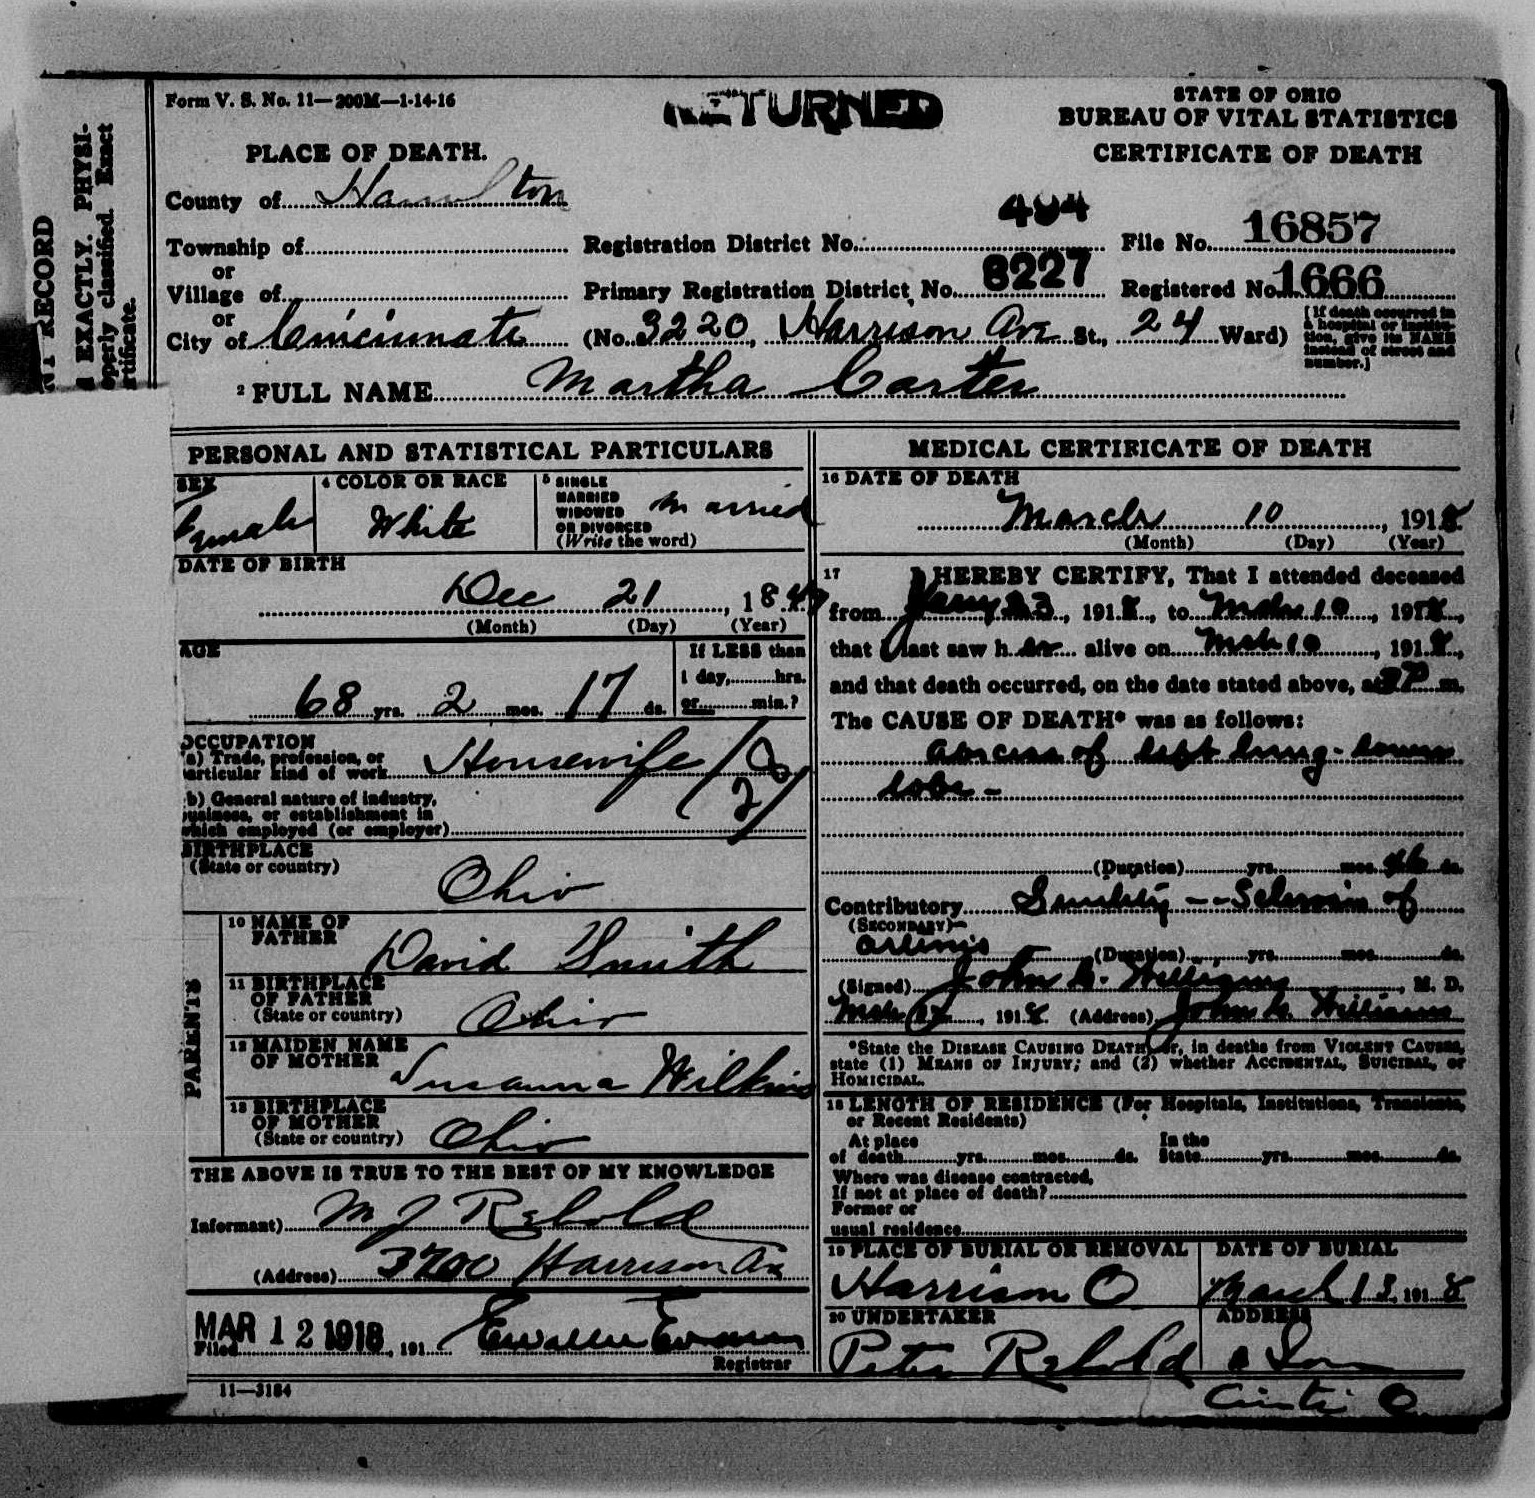 Form V. S. No. 11—200M—1-14-16
RETURNED
STATE OF OHIO
BUREAU OF VITAL STATISTICS
CERTIFICATE OF DEATH
PLACE OF DEATH.
County of Hamilton
Township of
or
Village of
or
City of Cincinnati
Registration District No. 494
File No. 16857
Primary Registration District No. 8227
Registered No. 1666
(No. 3220, Harrison Ave St., 24 Ward)
[If death occurred in a hospital or institution, give its NAME instead of street and number.]
2 FULL NAME Martha Carter
NT RECORD
EXACTLY. PHYSI-
operly classified. Exact
rtificate.
PERSONAL AND STATISTICAL PARTICULARS
SEX
Female
4 COLOR OR RACE
White
5 SINGLE
MARRIED
WIDOWED
OR DIVORCED
(Write the word)
Married
DATE OF BIRTH
Dec 21, 184
(Month) (Day) (Year)
AGE
68 yrs. 2 mos. 17 ds.
If LESS than
1 day, hrs.
or min.?
OCCUPATION
(a) Trade, profession, or
particular kind of work Housewife
b) General nature of industry,
business, or establishment in
which employed (or employer)
BIRTHPLACE
(State or country)
Ohio
PARENTS
10 NAME OF
FATHER
David Smith
11 BIRTHPLACE
OF FATHER
(State or country)
Ohio
12 MAIDEN NAME
OF MOTHER
Susanna Wilkins
13 BIRTHPLACE
OF MOTHER
(State or country)
Ohio
THE ABOVE IS TRUE TO THE BEST OF MY KNOWLEDGE
Informant) M J Rebold
(Address) 3700 Harrison Av
MAR 12 1918
Filed , 191
Registrar
11—3184
MEDICAL CERTIFICATE OF DEATH
16 DATE OF DEATH
March 10, 1918
(Month) (Day) (Year)
17 I HEREBY CERTIFY, That I attended deceased
from Jany 23, 1918, to Mch 10, 1918,
that I last saw her alive on Mch 10, 1918,
and that death occurred, on the date stated above, at m.
The CAUSE OF DEATH* was as follows:
Abscess of left lung - lower
lobe -
(Duration) yrs. mos. 46 ds.
Contributory Senility -- of
(SECONDARY)
(Duration) yrs. mos. ds.
(Signed) John Williams, M. D.
Mch, 1918 (Address) John Williams
*State the DISEASE CAUSING DEATH, or, in deaths from VIOLENT CAUSES,
state (1) MEANS OF INJURY; and (2) whether ACCIDENTAL, SUICIDAL, or
HOMICIDAL.
18 LENGTH OF RESIDENCE (For Hospitals, Institutions, Transients,
or Recent Residents)
At place
of death yrs. mos. ds.
In the
State yrs. mos. ds.
Where was disease contracted,
If not at place of death?
Former or
usual residence
19 PLACE OF BURIAL OR REMOVAL
Harrison O
DATE OF BURIAL
March 13, 1918
20 UNDERTAKER
Peter Rebold & Son
ADDRESS
Cinti O